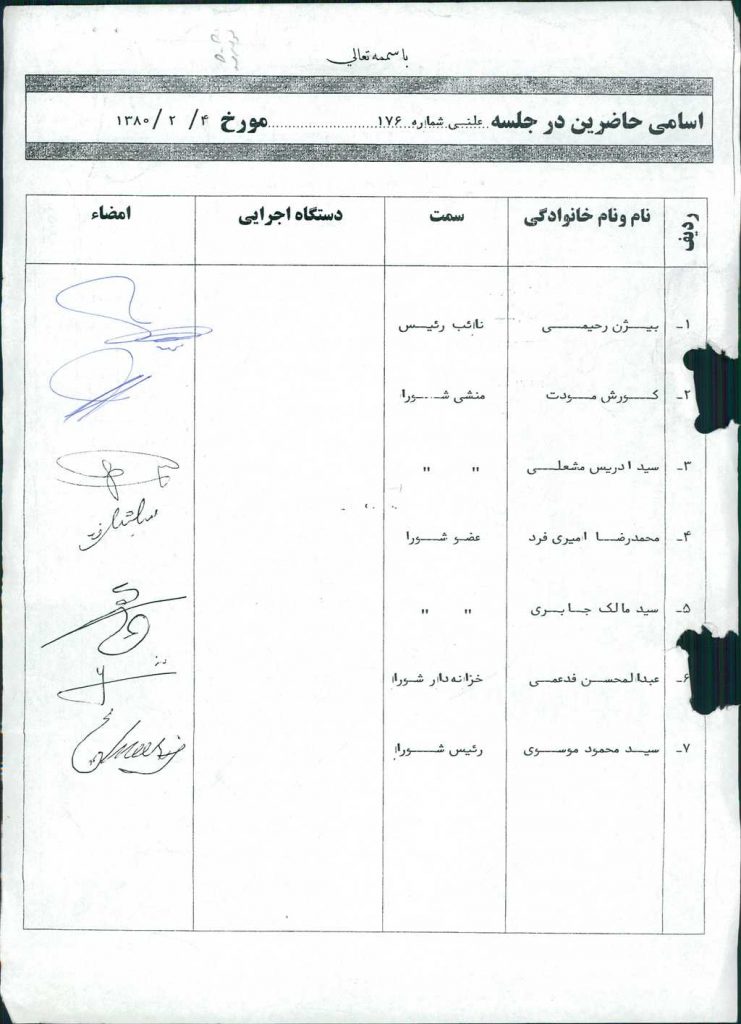 باسمه تعالی
اسامی حاضرین در جلسه علنی شماره ۱۷۶ مورخ ۴ / ۲ / ۱۳۸۰
ردیف نام ونام خانوادگی سمت دستگاه اجرایی امضاء
۱ـ بیژن رحیمی نائب رئیس
۲ـ کورش مودت منشی شورا
۳ـ سید ادریس مشعلی " "
۴ـ محمدرضا امیری فرد عضو شورا
۵ـ سید مالک جابری " "
۶ـ عبدالمحسن قدعمی خزانه‌دار شورا
۷ـ سید محمود موسوی رئیس شورا